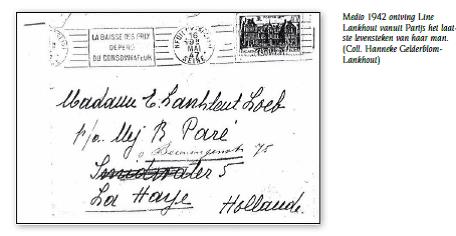 LA BAISSE DES PRIX
DEPEND
DU CONSOMMATEUR
NEUILLY
16
MAI
47
SEINE
Madame E. Lankhout Loeb
p/a. Mej R Paré
5
La Haye
Hollande.
Medio 1942 ontving Line
Lankhout vanuit Parijs het laat-
ste levensteken van haar man.
(Coll. Hanneke Gelderblom-
Lankhout)